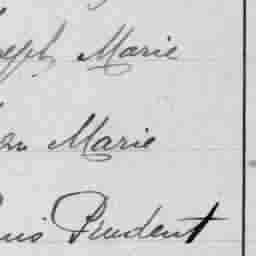 seph Marie
an Marie
uis Prudent